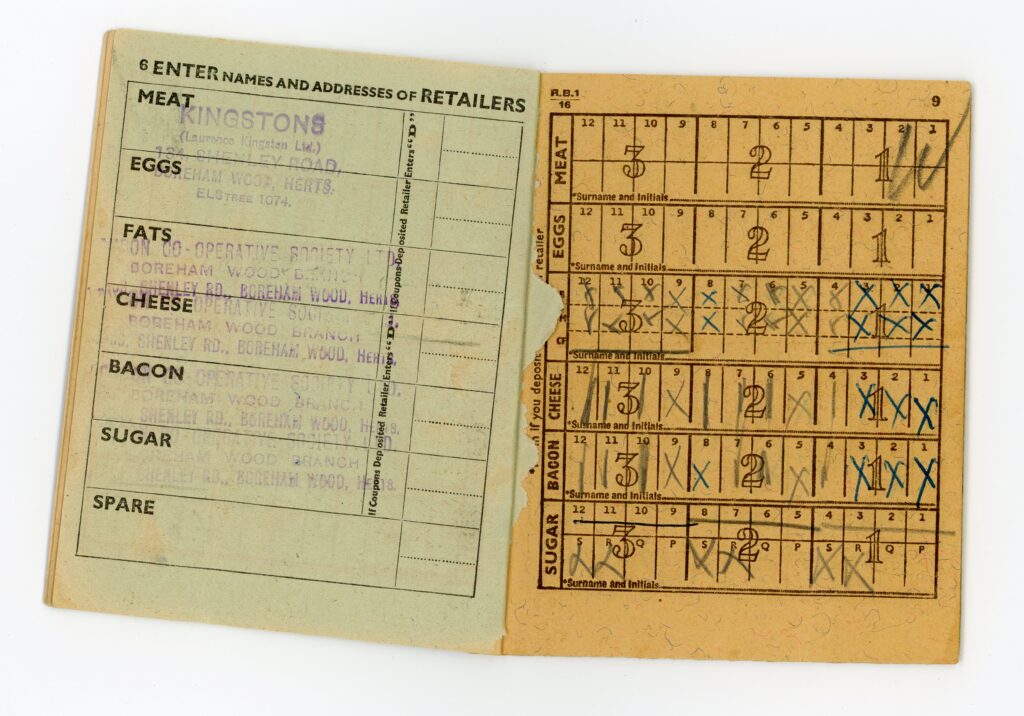 6 ENTER NAMES AND ADDRESSES OF RETAILERS
MEAT
KINGSTONS
(Laurence Kingston Ltd.)
134 SHENLEY ROAD,
BOREHAM WOOD, HERTS.
ELSTREE 1074.
EGGS
FATS
ON CO-OPERATIVE SOCIETY LTD.
BOREHAM WOOD BRANCH
SHENLEY RD., BOREHAM WOOD, Herts.
CHEESE
OPERATIVE SOCI
BOREHAM WOOD BRANCH
SHENLEY RD., BOREHAM WOOD, Herts.
BACON
CO-OPERATIVE SOCIETY LTD.
BOREHAM WOOD BRANCH
SHENLEY RD., BOREHAM WOOD, Herts.
SUGAR
OPERATIVE SOCIETY LTD
BOREHAM WOOD BRANCH
SHENLEY RD., BOREHAM WOOD, Herts.
SPARE
If Coupons Deposited Retailer Enters "D"
If Coupons Deposited Retailer Enters "D"
R.B.1
16
9
MEAT
12 11 10 9 8 7 6 5 4 3 2 1
3 2 1
*Surname and Initials
EGGS
12 11 10 9 8 7 6 5 4 3 2 1
3 2 1
*Surname and Initials
12 11 10 9 8 7 6 5 4 3 2 1
3 2 1
*Surname and Initials
CHEESE
12 11 10 9 8 7 6 5 4 3 2 1
3 2 1
*Surname and Initials
BACON
12 11 10 9 8 7 6 5 4 3 2 1
3 2 1
*Surname and Initials
SUGAR
12 11 10 9 8 7 6 5 4 3 2 1
3 2 1
S R Q P S R Q P S R Q P
*Surname and Initials
if you deposit
retailer